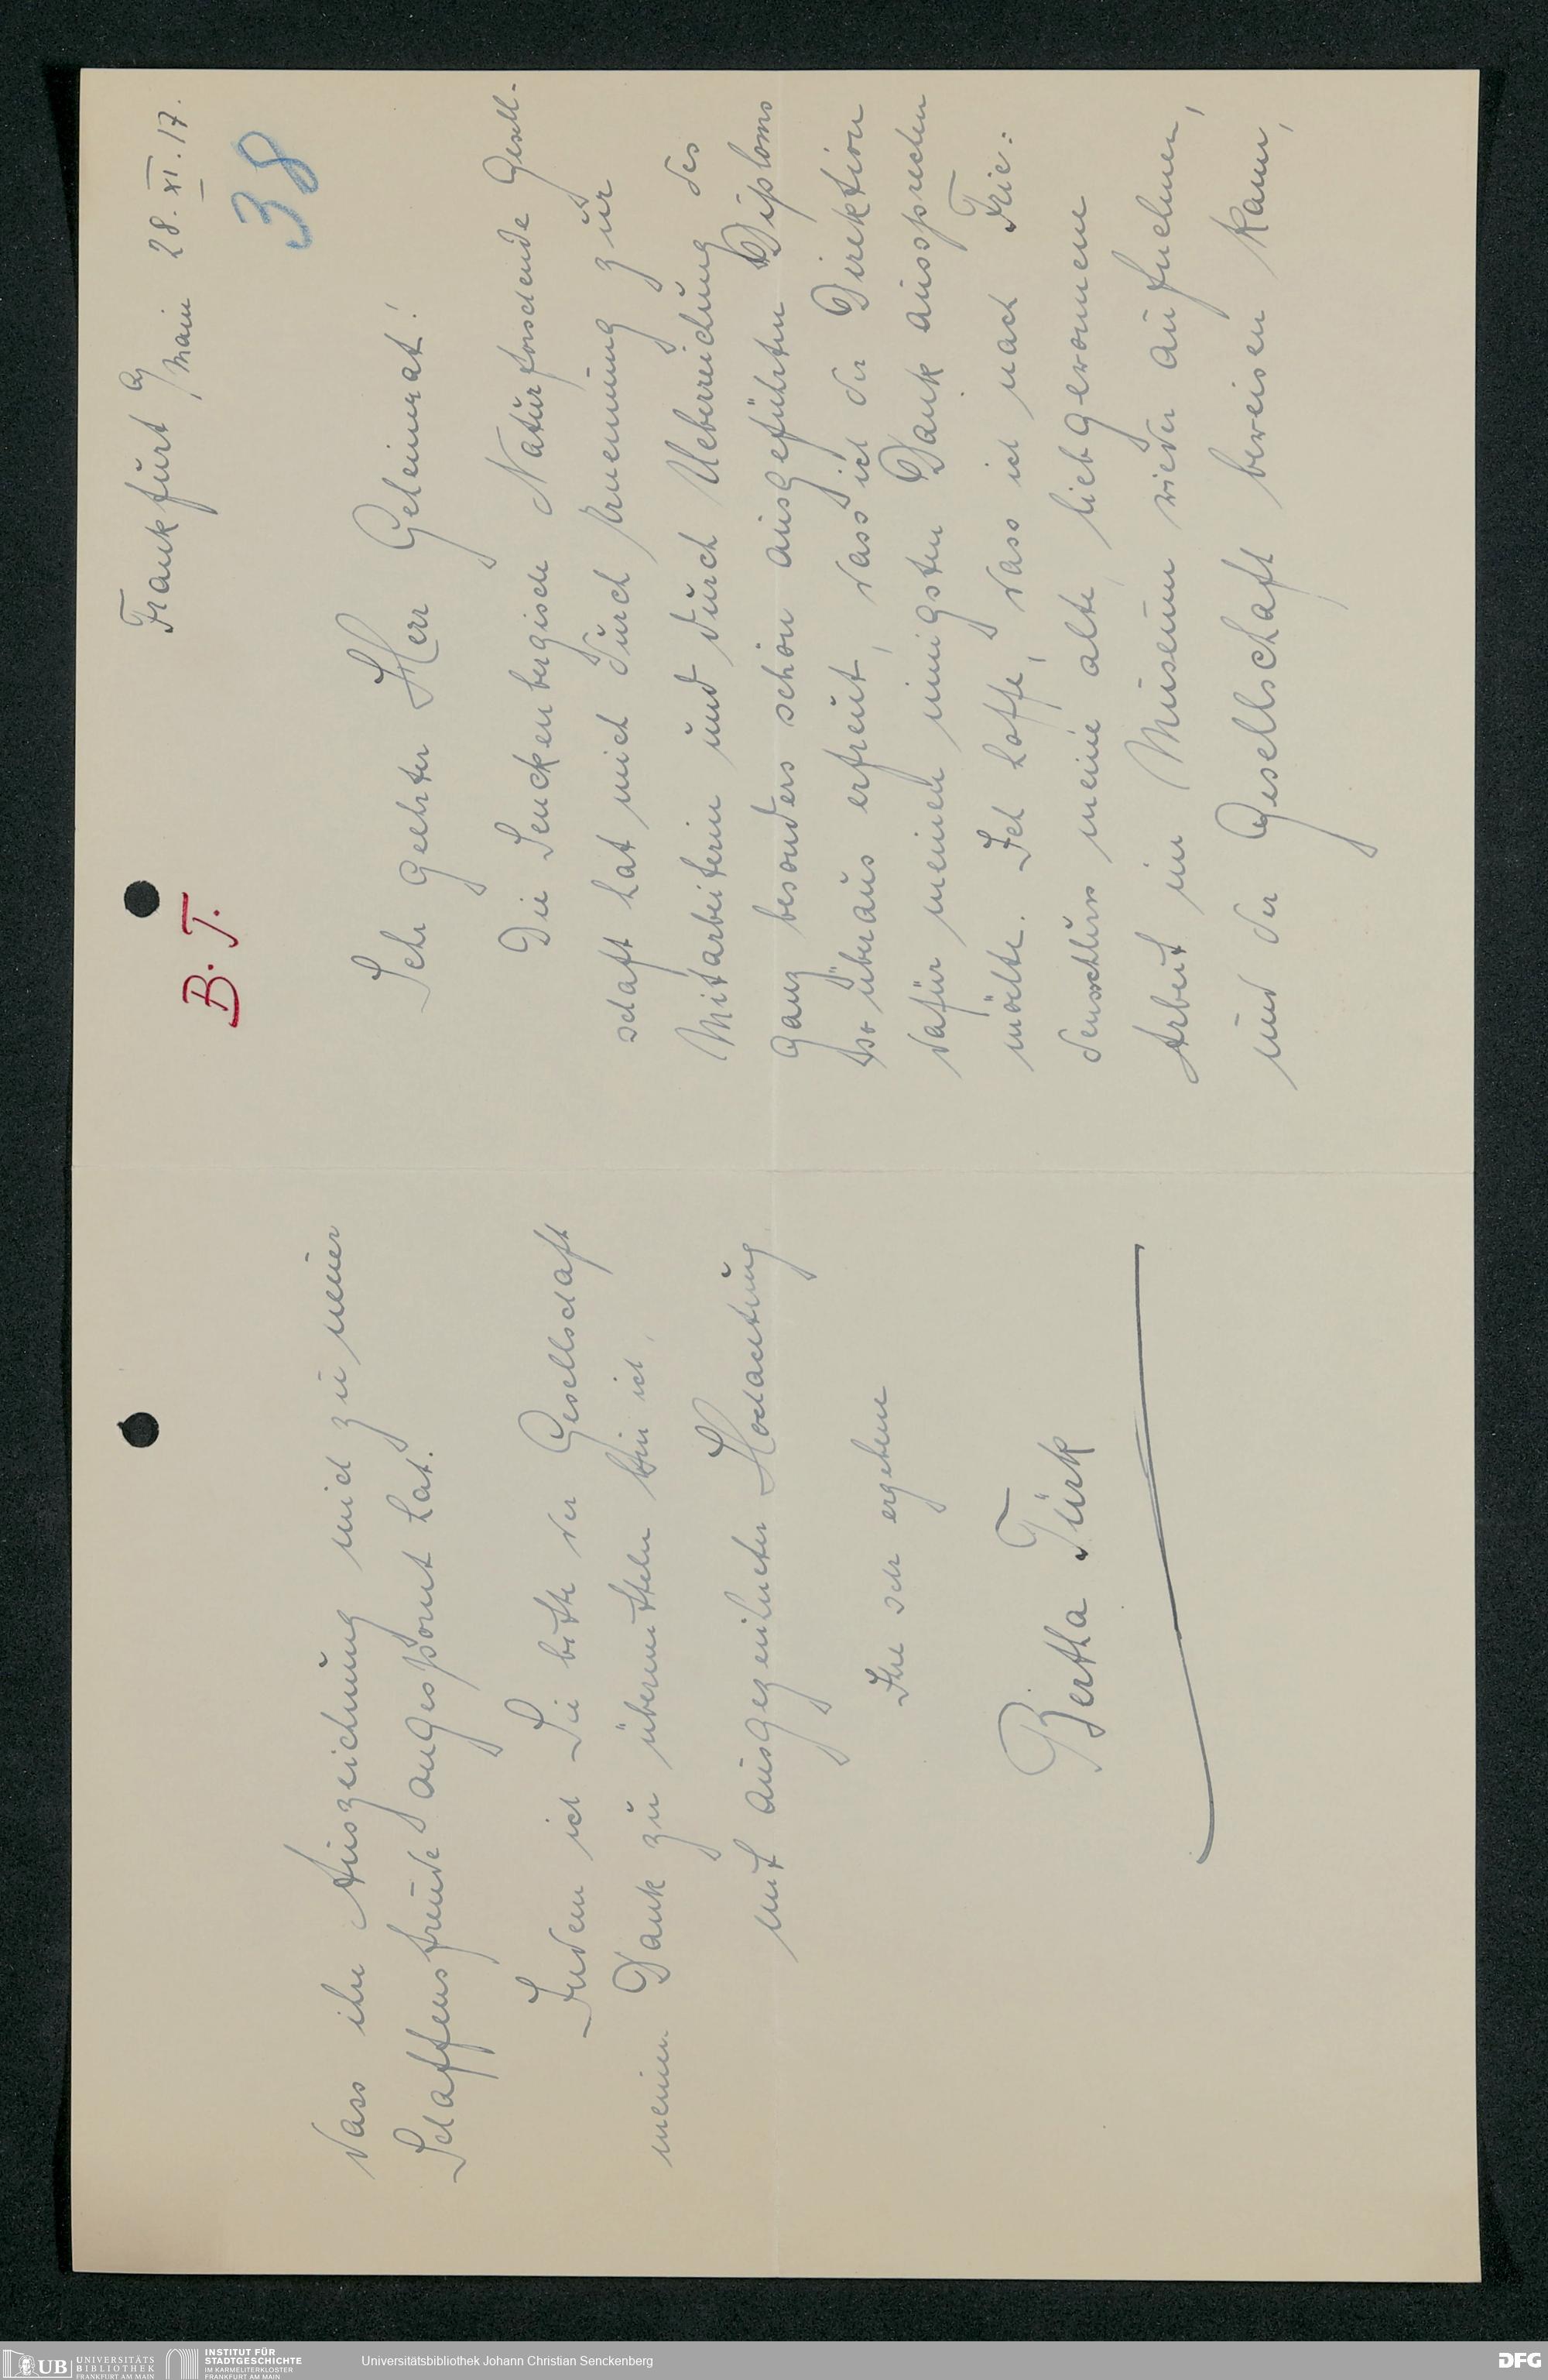 B. T.
Frankfurt a/Main 28. XI. 17.
38
Sehr geehrter Herr Geheimrat!
Die Senckenbergische Naturforschende Gesell-
schaft hat mich durch Ernennung zur
Mitarbeiterin und durch Ueberreichung des
ganz besonders schön ausgeführten Diploms
so überaus erfreut, dass ich der Direktion
dafür meinen innigsten Dank aussprechen
möchte. Ich hoffe, dass ich nach Frie:
densschluss meine alte, liebgewonnene
Arbeit im Museum wieder aufnehmen,
und der Gesellschaft beweisen kann,
dass ihre Auszeichnung mich zu neuer
Schaffensfreude angespornt hat.
Indem ich Sie bitte der Gesellschaft
meinen Dank zu übermitteln bin ich,
mit ausgezeichneter Hochachtung
Ihre sehr ergebene
Bertha Türk
UB UNIVERSITÄTS
BIBLIOTHEK
FRANKFURT AM MAIN
INSTITUT FÜR
STADTGESCHICHTE
IM KARMELITERKLOSTER
FRANKFURT AM MAIN
Universitätsbibliothek Johann Christian Senckenberg
DFG